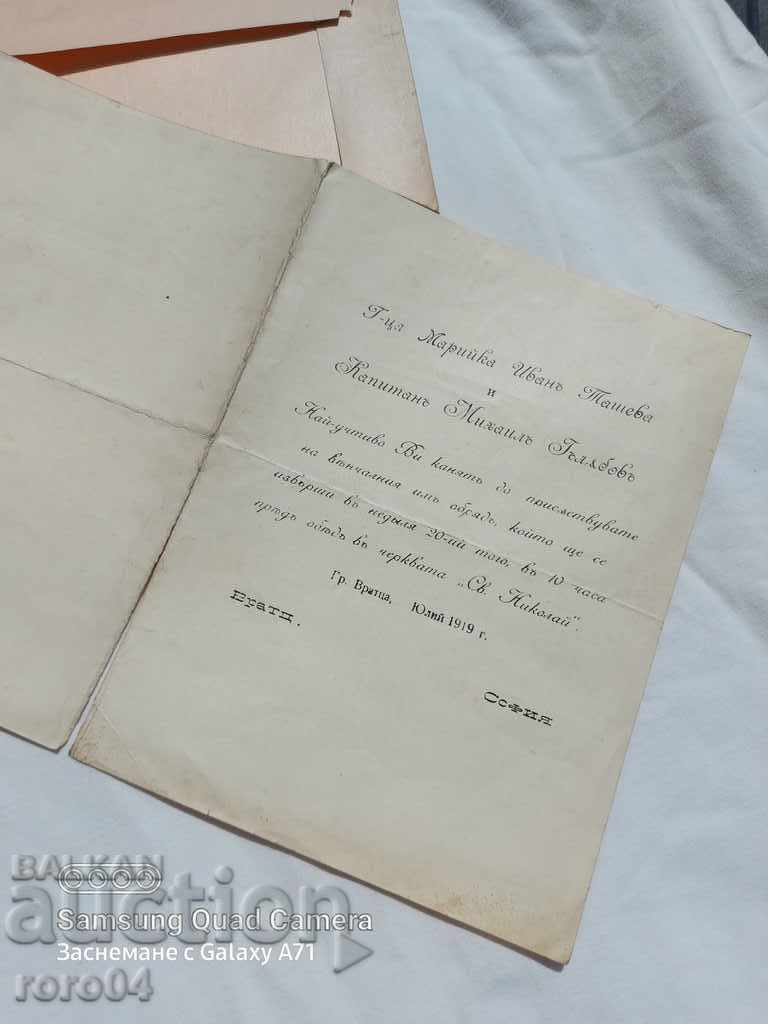 Г-ца Марийка Иванъ Ташева
и
Капитанъ Михаилъ Гълѫбовъ
Най-учтиво Ви канятъ да присѫтствувате
на вѣнчалния имъ обрядъ, който ще се
извърши въ недѣля 20-ий того, въ 10 часа
прѣдъ обѣдъ въ черквата „Св. Николай“.
Гр. Вратца, Юлий 1919 г.
Вратц.
София
BALKAN
auction
Samsung Quad Camera
Заснемане с Galaxy A71
roro04